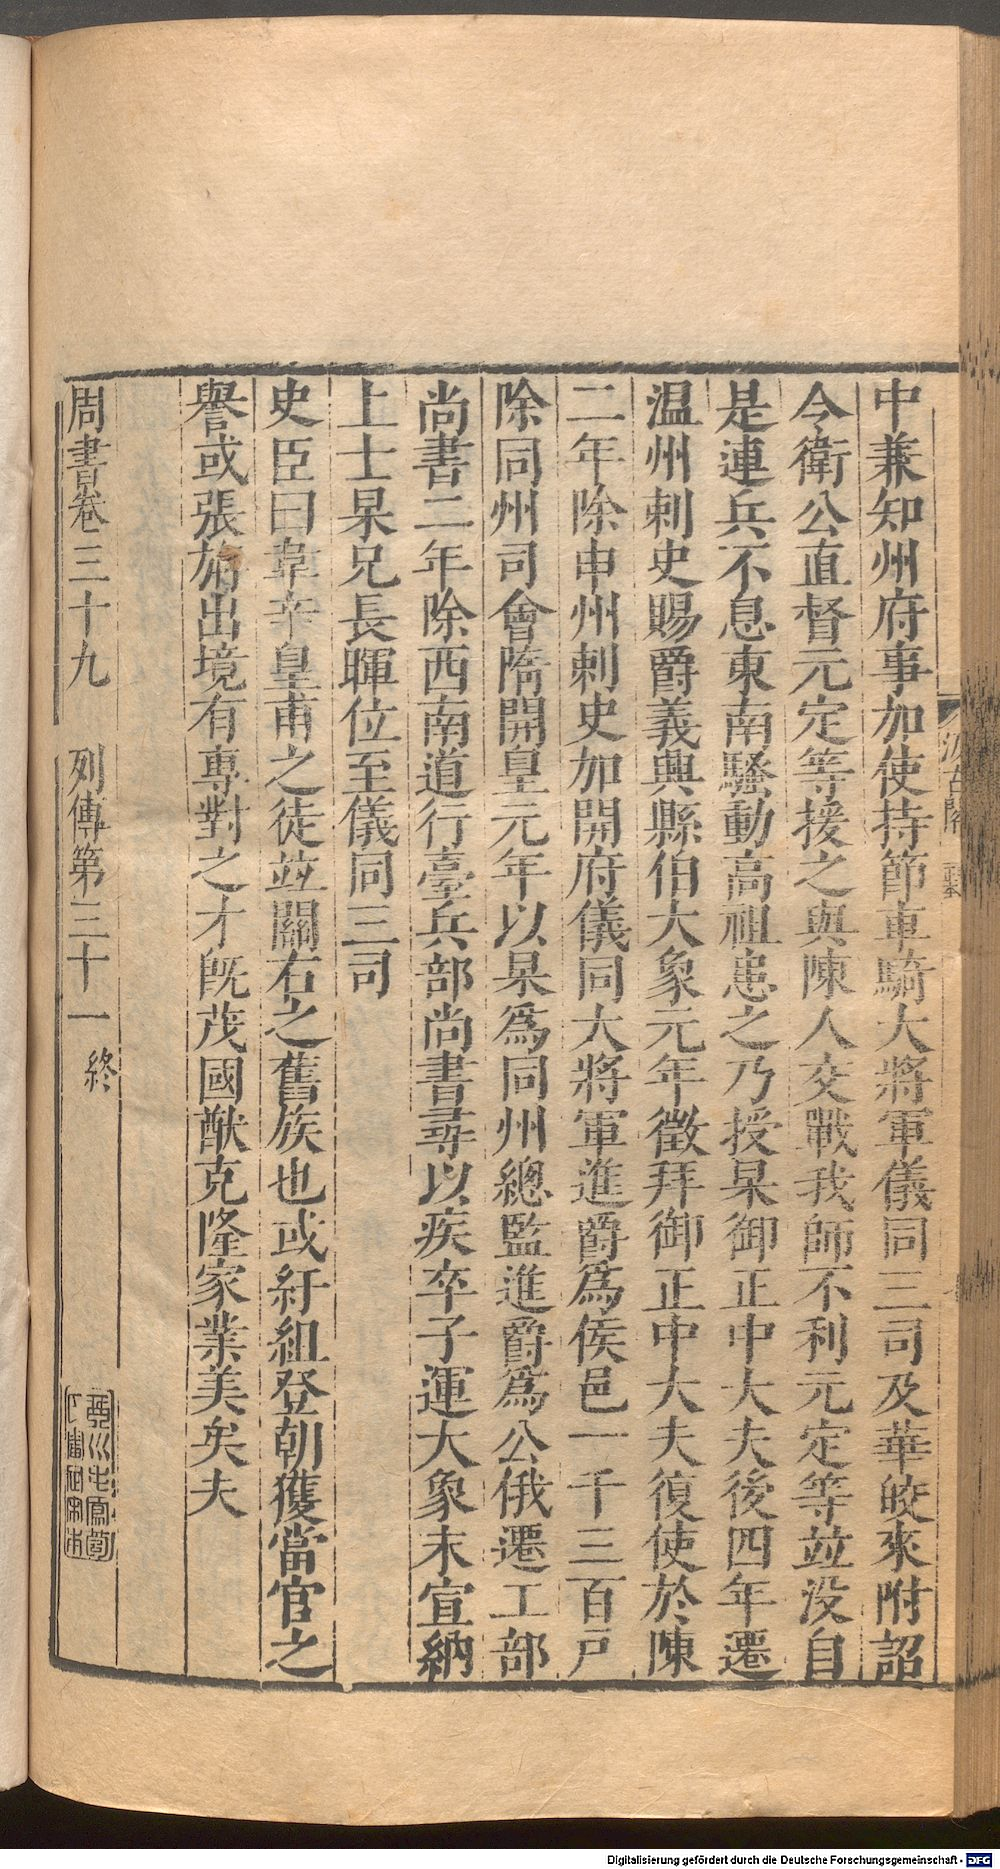 中兼知州府事加使持節車騎大將軍儀同三司及華皎來附詔
令衛公直督元定等接之與陳人交戰我師不利元定等竝没自
是連兵不息東南騷動高祖患之乃授杲御正中大夫後四年遷
温州刺史賜爵義興縣伯大象元年徵拜御正中大夫復使於陳
二年除申州刺史加開府儀同大將軍進爵爲侯邑一千三百戸
除同州司會隋開皇元年以杲爲同州總監進爵爲公俄遷工部
尚書二年除西南道行臺兵部尚書尋以疾卒子運大象末宣納
上士杲兄長暉位至儀同三司
史臣曰韋辛皇甫之徒竝關右之舊族也或紆組登朝獲當官之
譽或張旃出境有專對之才旣茂國猷克隆家業美矣夫
周書卷三十九 列傳第三十一 終
Digitalisierung gefördert durch die Deutsche Forschungsgemeinschaft - DFG